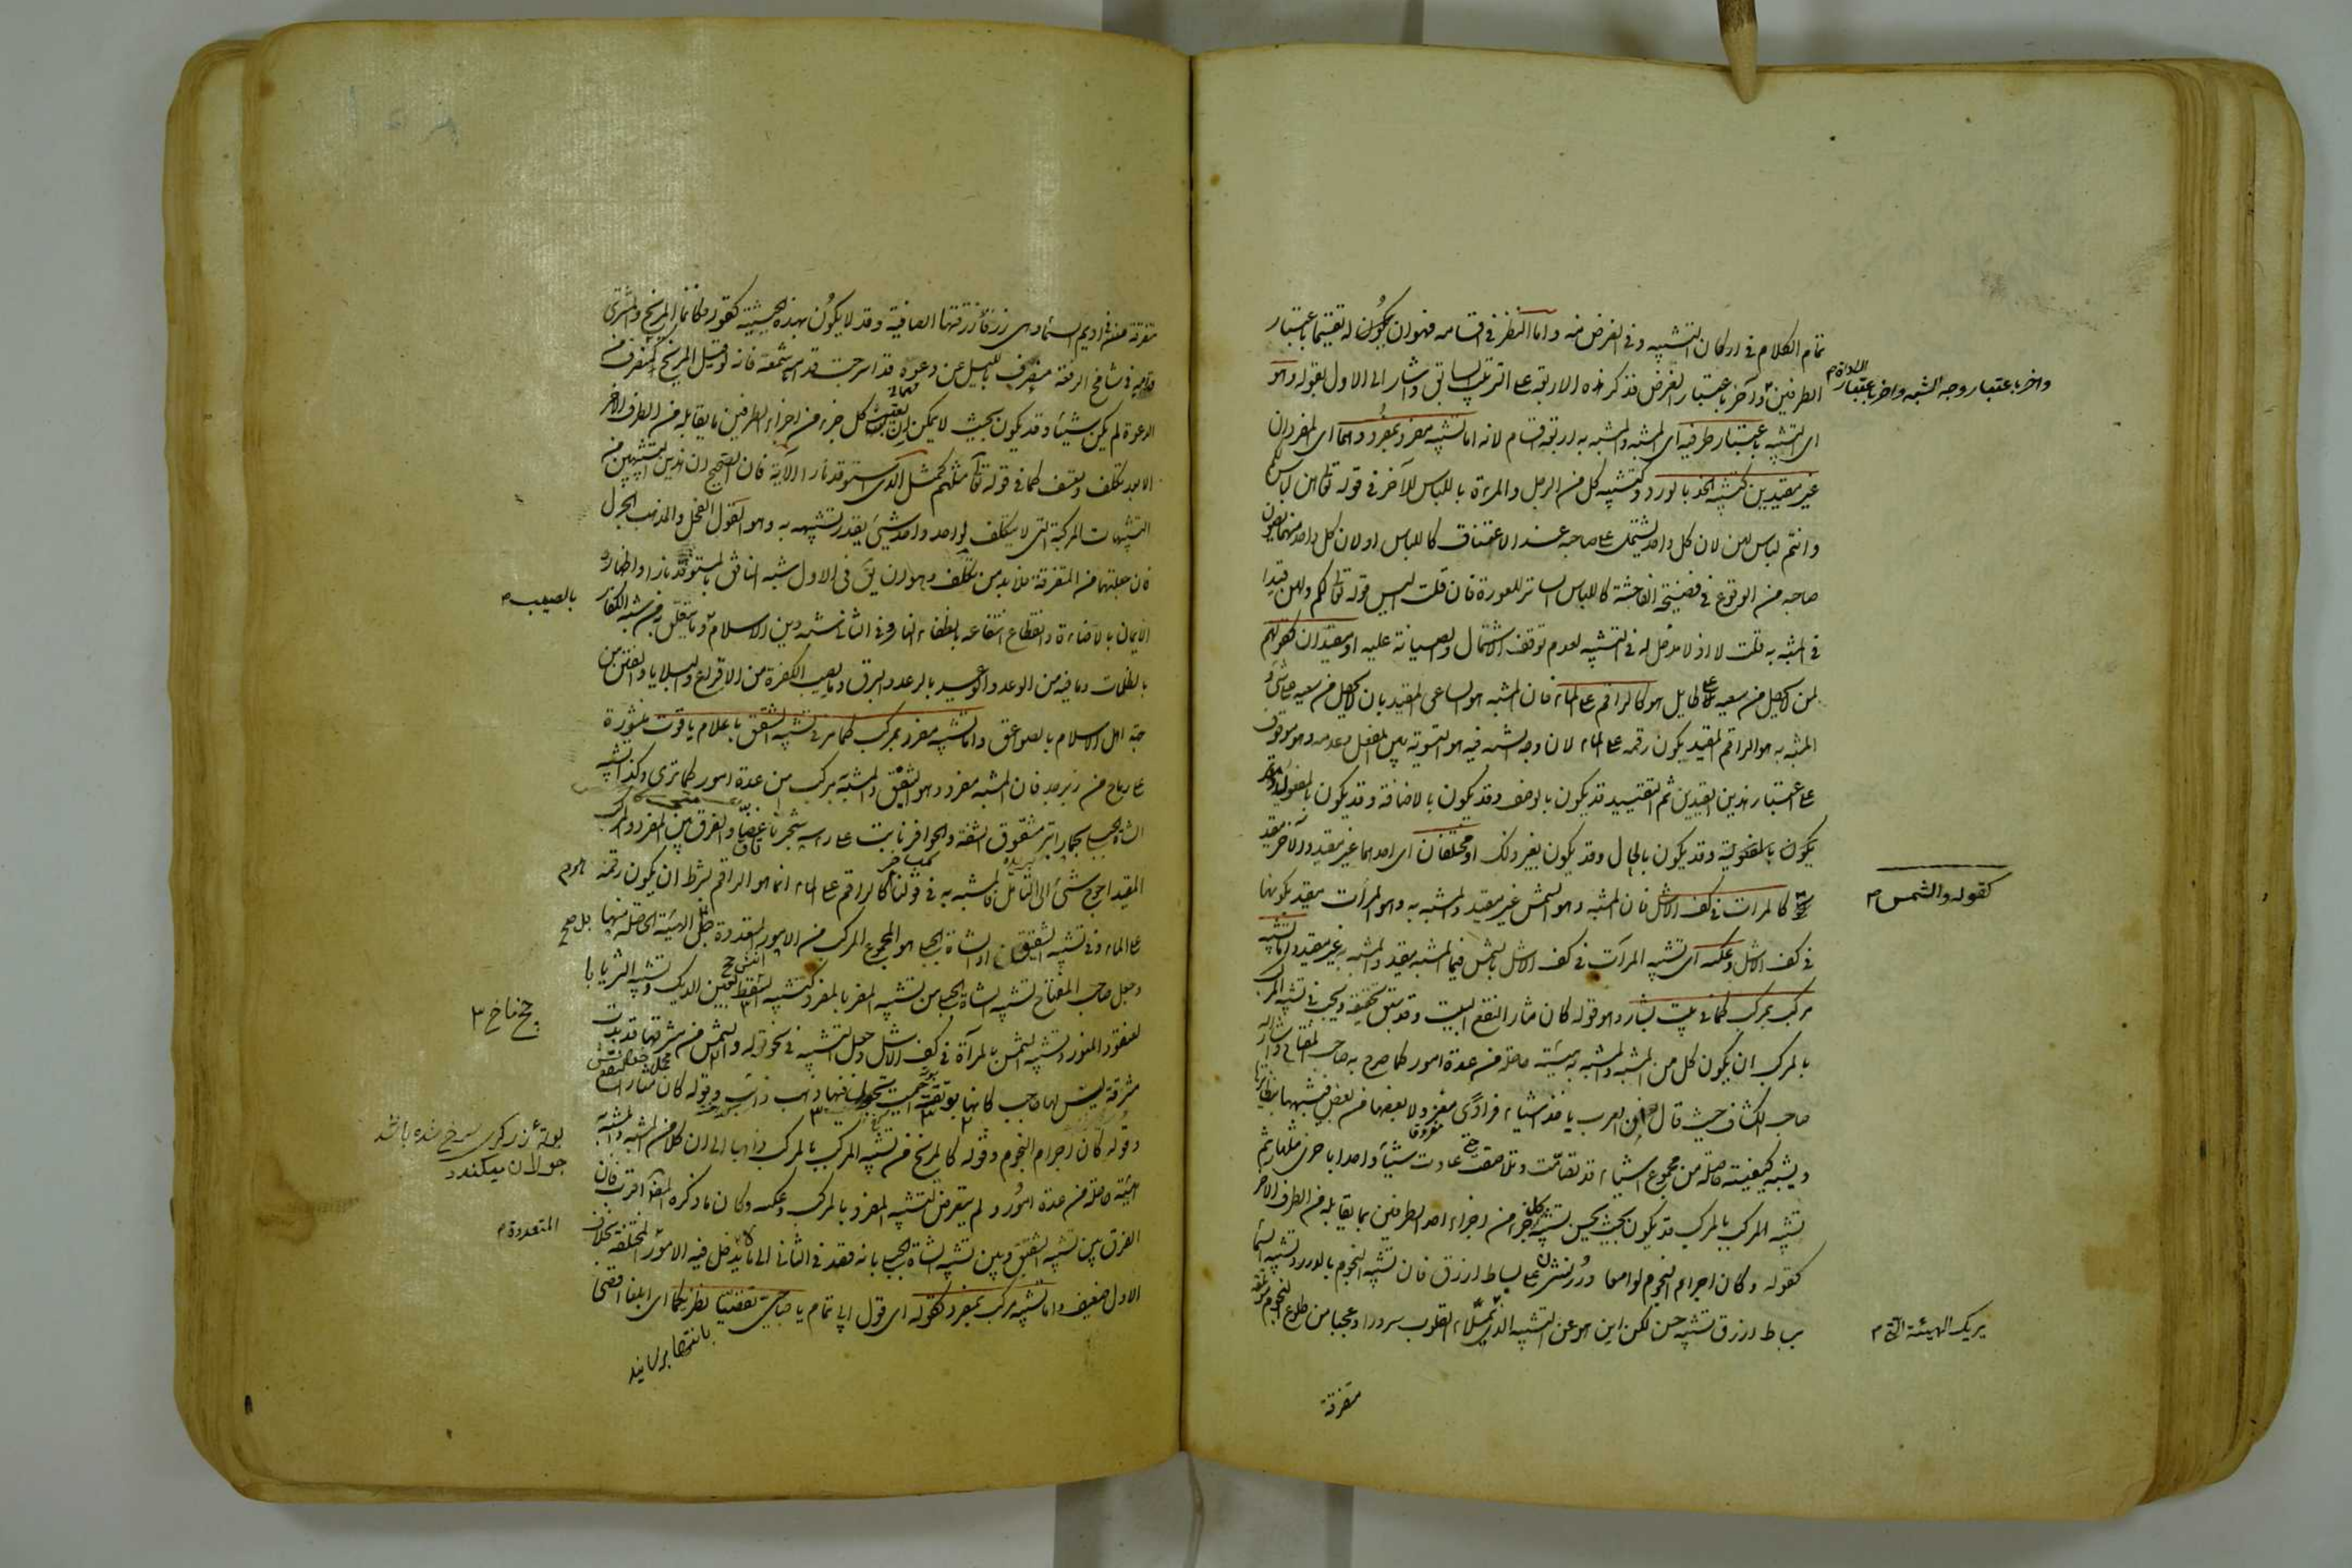 تمام الكلام فى اركان التشبيه و فى الغرض منه و اما النظر فى اقسامه فهو ان يكون له تقسيما باعتبار
الطرفين و آخر باعتبار الغرض فذكر هذه الاربعة على الترتيب السابق و اشار الى الاول بقوله و هو
و اخر باعتبار وجه الشبه و اخر باعتبار الاداة م
اى التشبيه باعتبار طرفيه اى المشبه و المشبه به اربعة اقسام لانه اما تشبيه مفرد بمفرد و هما اى المفردان
غير مقيدين كتشبيه الخد بالورد و كتشبيه كل من الرجل و المرءة باللباس للآخر فى قوله تعالى هن لباس لكم
و انتم لباس لهن لان كل واحد يشتمل على صاحبه عند الاعتناق كاللباس او لان كل واحد منهما يصون
صاحبه من الوقوع فى فضيحة الفاحشة كاللباس الساتر للعورة فان قلت اليس قوله تعالى لكم و لهن قيدا
فى المشبه به قلت لا اذ لا مدخل له فى التشبيه لعدم توقف الاشتمال و الصيانة عليه او مقيدان كقولهم
لمن لا يحصل من سعيه على طايل هو كالراقم على الماء فان المشبه هو الساعى المقيد بان لا يحصل من سعيه على شئ و
المشبه به هو الراقم المقيد بكون رقمه على الماء لان وجه الشبه فيه هو التسوية بين الفعل و عدمه و هو موقوف
على اعتبار هذين القيدين ثم التقييد قد يكون بالوصف و قد يكون بالاضافة و قد يكون بالمفعول و قد
يكون بالمفعولية و قد يكون بالحال و قد يكون بغير ذلك او مختلفان اى احدهما غير مقيد و الآخر مقيد
كقوله و الشمس م
كالمرات فى كف الاشل فان المشبه و هو الشمس غير مقيد و المشبه به و هو المرات مقيد بكونها
فى كف الاشل و عكسه اى تشبيه المرآت فى كف الاشل بالشمس فيما المشبه مقيد و المشبه به غير مقيد و اما تشبيه
مركب بمركب كما فى بيت بشار و هو قوله كان مثار النقع البيت و قد سبق تحقيقه و يجب فى تشبيه المركب
بالمركب ان يكون كل من المشبه و المشبه به هيئة حاصلة من عدة امور كما صرح به صاحب المفتاح و اشار اليه
صاحب الكشاف حيث قال ان العرب ياخذ اشياء فرادى معزولا بعضها من بعض فيشبهها بنظائرها
و يشبه كيفية حاصلة من مجموع اشياء قد تضامت و تلاصقت حتى عادت شيئا واحدا باخرى مثلها ثم
تشبيه المركب بالمركب قد يكون بحيث يحسن تشبيه كل جزء من اجزاء احد الطرفين بما يقابله من الطرف الاخر
كقوله و كان اجرام النجوم لوامعا درر نثرن على بساط ازرق فان تشبيه النجوم بالدرر و تشبيه السماء
ببساط ازرق تشبيه حسن لكن اين هو عن التشبيه الذى يملاء القلوب سرورا و عجبا من طلوع النجوم مؤتلقة
يريك الهيئة التى م
متفرقة
متفرقة فى اديم السماء و هى زرقاء زرقتها الصافية و قد لا يكون بهذه الحيثية كقوله فكانما المريخ و المشترى
قدامه فى شامخ الرفعة منصرف بالليل عن دعوة قد اسرجت قدامه شمعة فانه لو قيل المريخ كمنصرف من
الدعوة لم يكن شيئا و قد يكون بحيث لا يمكن ان يعتبر كل جزء من اجزاء الطرفين ما يقابله من الطرف الاخر
الا بعد تكلف و تعسف كما فى قوله تعالى مثلهم كمثل الذى استوقد نارا الآية فان الصحيح ان هذين التشبيهين من
التشبيهات المركبة التى لا يتكلف لواحد واحد شيئ يقدر تشبيهه به و هو القول الفحل و المذهب الجزل
فان جعلتهما من المتفرقة فلا بد من تكلف و هو ان يق فى الاول شبه المنافق بالمستوقد نارا و اظهاره
الايمان بالاضاءة و انقطاع انتفاعه بانطفاء النار و فى الثانى شبه دين الاسلام و ما يتعلق به من شبه الكفار
بالصيب م
بالظلمات و ما فيه من الوعد و الوعيد بالرعد و البرق و ما يصيب الكفرة من الافزاع و البلايا و الفتن من
جهة اهل الاسلام بالصواعق و اما تشبيه مفرد بمركب كما مر فى تشبيه الشقيق باعلام ياقوت منشورة
على رماح من زبرجد فان المشبه مفرد و هو الشقيق و المشبه به مركب من عدة امور كما ترى و كذا تشبيه
الشاة الجبلى بحمار ابتر مشقوق الشفة و الحوافر نابت على راسه شجرتا غضا و الفرق بين المفرد و المركب
المقيد احوج شئ الى التأمل فالمشبه به فى قولنا كالراقم على الماء انما هو الراقم بشرط ان يكون رقمه
على الماء و فى تشبيه الشقيق او الشاة الجبلى هو المجموع المركب من الامور المتعددة بل الهيئة الحاصلة منها
و جعل صاحب المفتاح تشبيه الشاة الجبلى من تشبيه المفرد بالمفرد كتشبيه السقط بعين الديك و تشبيه الثريا با
لعنقود المنور و تشبيه الشمس بالمرآة فى كف الاشل و جعل التشبيه فى نحو قوله و الشمس من مشرقها قد بدت
مشرقة ليس لها حاجب كانها بوتقة احميت يجول فيها ذهب ذائب و قوله كان مثار النقع
بوته زركرى سرخ شده باشد
جولان ميكندد
و قوله كان اجرام النجوم و قوله كالمريخ من تشبيه المركب بالمركب ذاهبا الى ان كلا من المشبه و المشبه به
هيئة حاصلة من عدة امور و لم يتعرض لتشبيه المفرد بالمركب و عكسه و كان ما ذكره المصنف اقرب فان
الفرق بين تشبيه الشقيق و بين تشبيه الشاة الجبلى بانه قصد فى الثانى الى ما يدخل فيه الامور المختلفة بخلاف
المتعددة م
الاول ضعيف و اما تشبيه مركب بمفرد كقوله اى قول ابى تمام يا صاحبى تقصيا نظريكما اى ابلغا اقصى